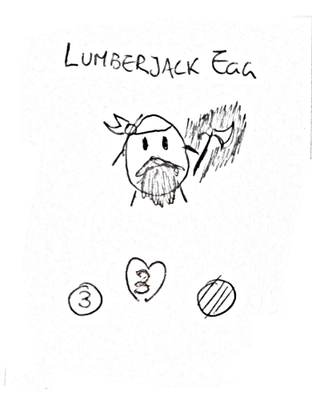 LUMBERJACK EGG
3
3